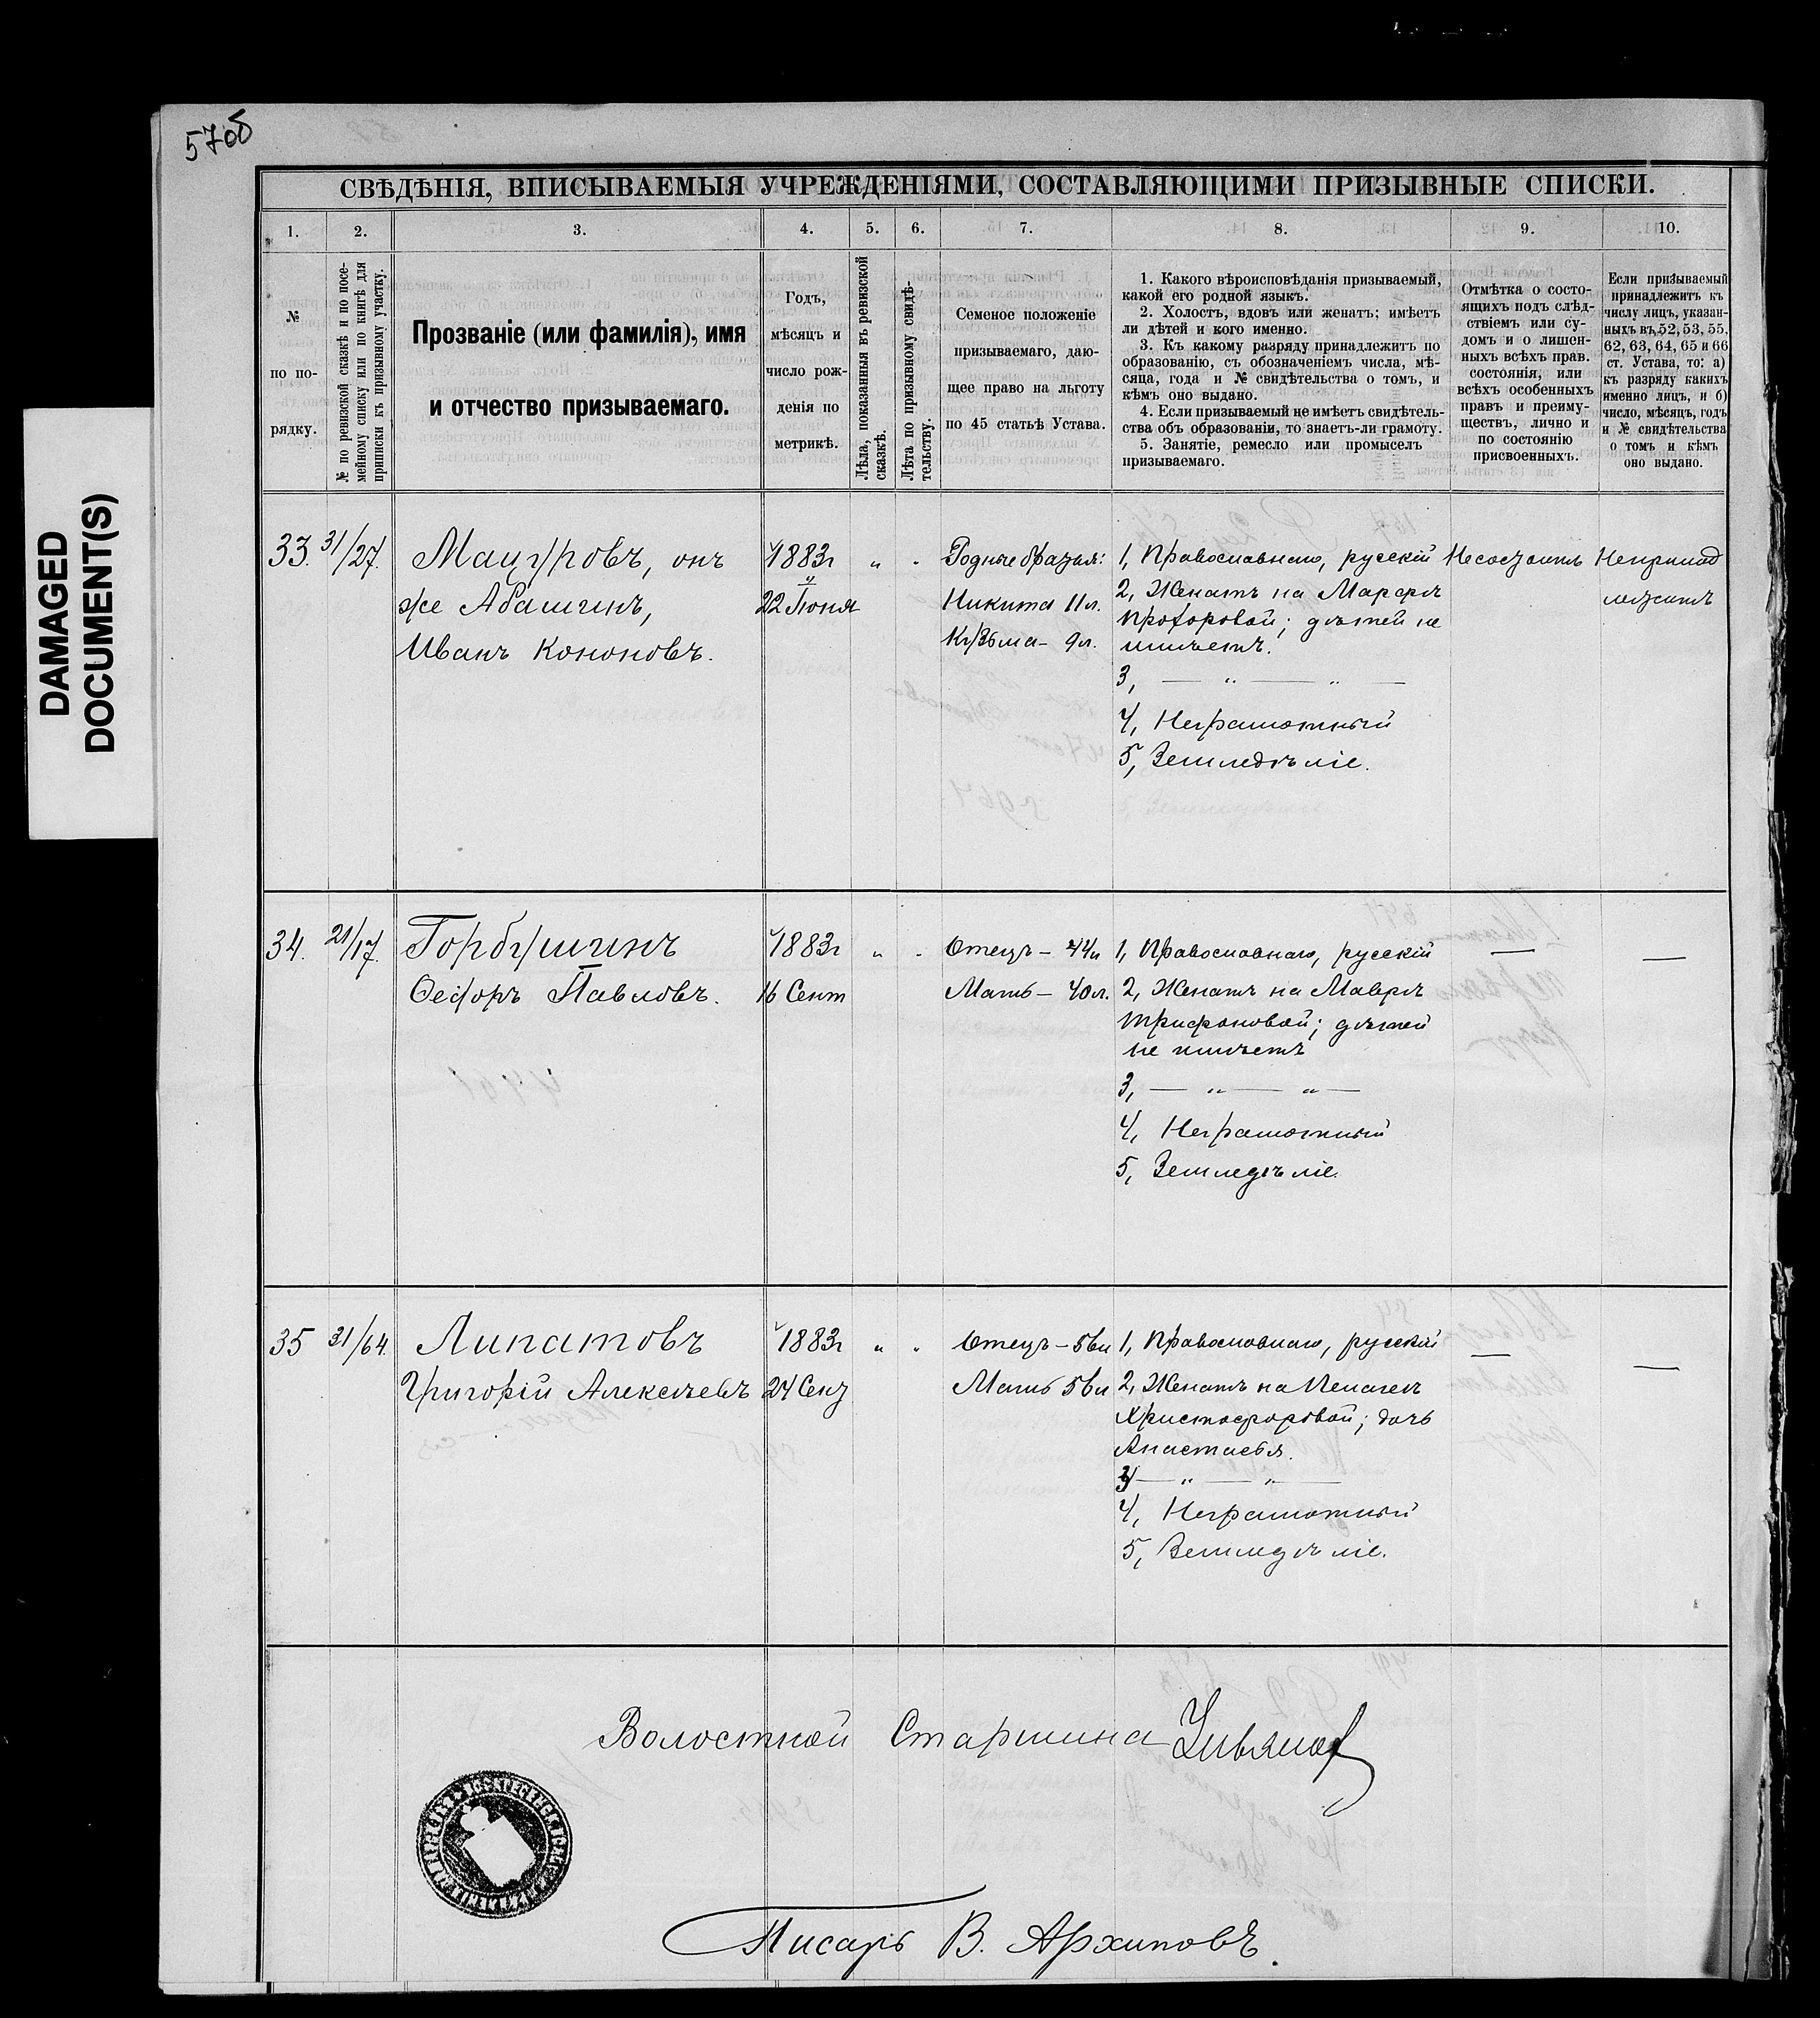 57об
DAMAGED
DOCUMENT(S)
СВѢДѢНІЯ, ВПИСЫВАЕМЫЯ УЧРЕЖДЕНІЯМИ, СОСТАВЛЯЮЩИМИ ПРИЗЫВНЫЕ СПИСКИ.
1. 2. 3. 4. 5. 6. 7. 8. 9. 10.
№
по по-
рядку.
№ по ревизской сказкѣ и по посе-
мейному списку или по книгѣ для
приписки къ призывному участку.
Прозваніе (или фамилія), имя
и отчество призываемаго.
Годъ,
мѣсяцъ и
число рож-
денія по
метрикѣ.
Лѣта, показанныя въ ревизской
сказкѣ.
Лѣта по призывному свидѣ-
тельству.
Семейное положеніе
призываемаго, даю-
щее право на льготу
по 45 статьѣ Устава.
1. Какого вѣроисповѣданія призываемый,
какой его родной языкъ.
2. Холостъ, вдовъ или женатъ; имѣетъ
ли дѣтей и кого именно.
3. Къ какому разряду принадлежитъ по
образованію, съ обозначеніемъ числа, мѣ-
сяца, года и № свидѣтельства о томъ, и
кѣмъ оно выдано.
4. Если призываемый не имѣетъ свидѣтель-
ства объ образованіи, то знаетъ-ли грамоту.
5. Занятіе, ремесло или промыселъ
призываемаго.
Отмѣтка о состо-
ящихъ подъ слѣд-
ствіемъ или су-
домъ и о лишен-
ныхъ всѣхъ прав.
состоянія, или
всѣхъ особенныхъ
правъ и преиму-
ществъ, лично и
по состоянію
присвоенныхъ.
Если призываемый
принадлежитъ къ
числу лицъ, указан-
ныхъ въ 52, 53, 55,
62, 63, 64, 65 и 66
ст. Устава, то: а)
къ разряду какихъ
именно лицъ, и б)
число, мѣсяцъ, годъ
и № свидѣтельства
о томъ и кѣмъ
оно выдано.
33. 31/27.
Мацуровъ, онъ
же Абашинъ,
Иванъ Кононовъ.
1883г
22 Іюня
" "
Родные братья:
Никита 11л.
Кузьма – 9л.
1, Православнаго, русскій
2, Женатъ на Марфѣ
Прохоровой; дѣтей не
имѣетъ.
3, — " — " —
4, Неграмотный
5, Земледѣліе.
Несостоитъ
Непринад
лежитъ
34. 21/17.
Горбушинъ
Ѳедоръ Павловъ.
1883г
16 Сент
" "
Отецъ – 44л
Мать – 40л.
1, Православнаго, русскій
2, Женатъ на Маврѣ
Трифоновой; дѣтей
не имѣетъ
3, — " — " —
4, Неграмотный
5, Земледѣліе.
— —
35 31/64.
Липатовъ
Григорій Алексѣевъ
1883г
24 Сент
" "
Отецъ – 56л
Мать 56л
1, Православнаго, русскій
2, Женатъ на Пелагеѣ
Христофоровой; дочь
Анастасья.
3, — " — " —
4, Неграмотный
5, Земледѣліе.
— —
Волостной Старшина
Писарь В. Архиповъ.